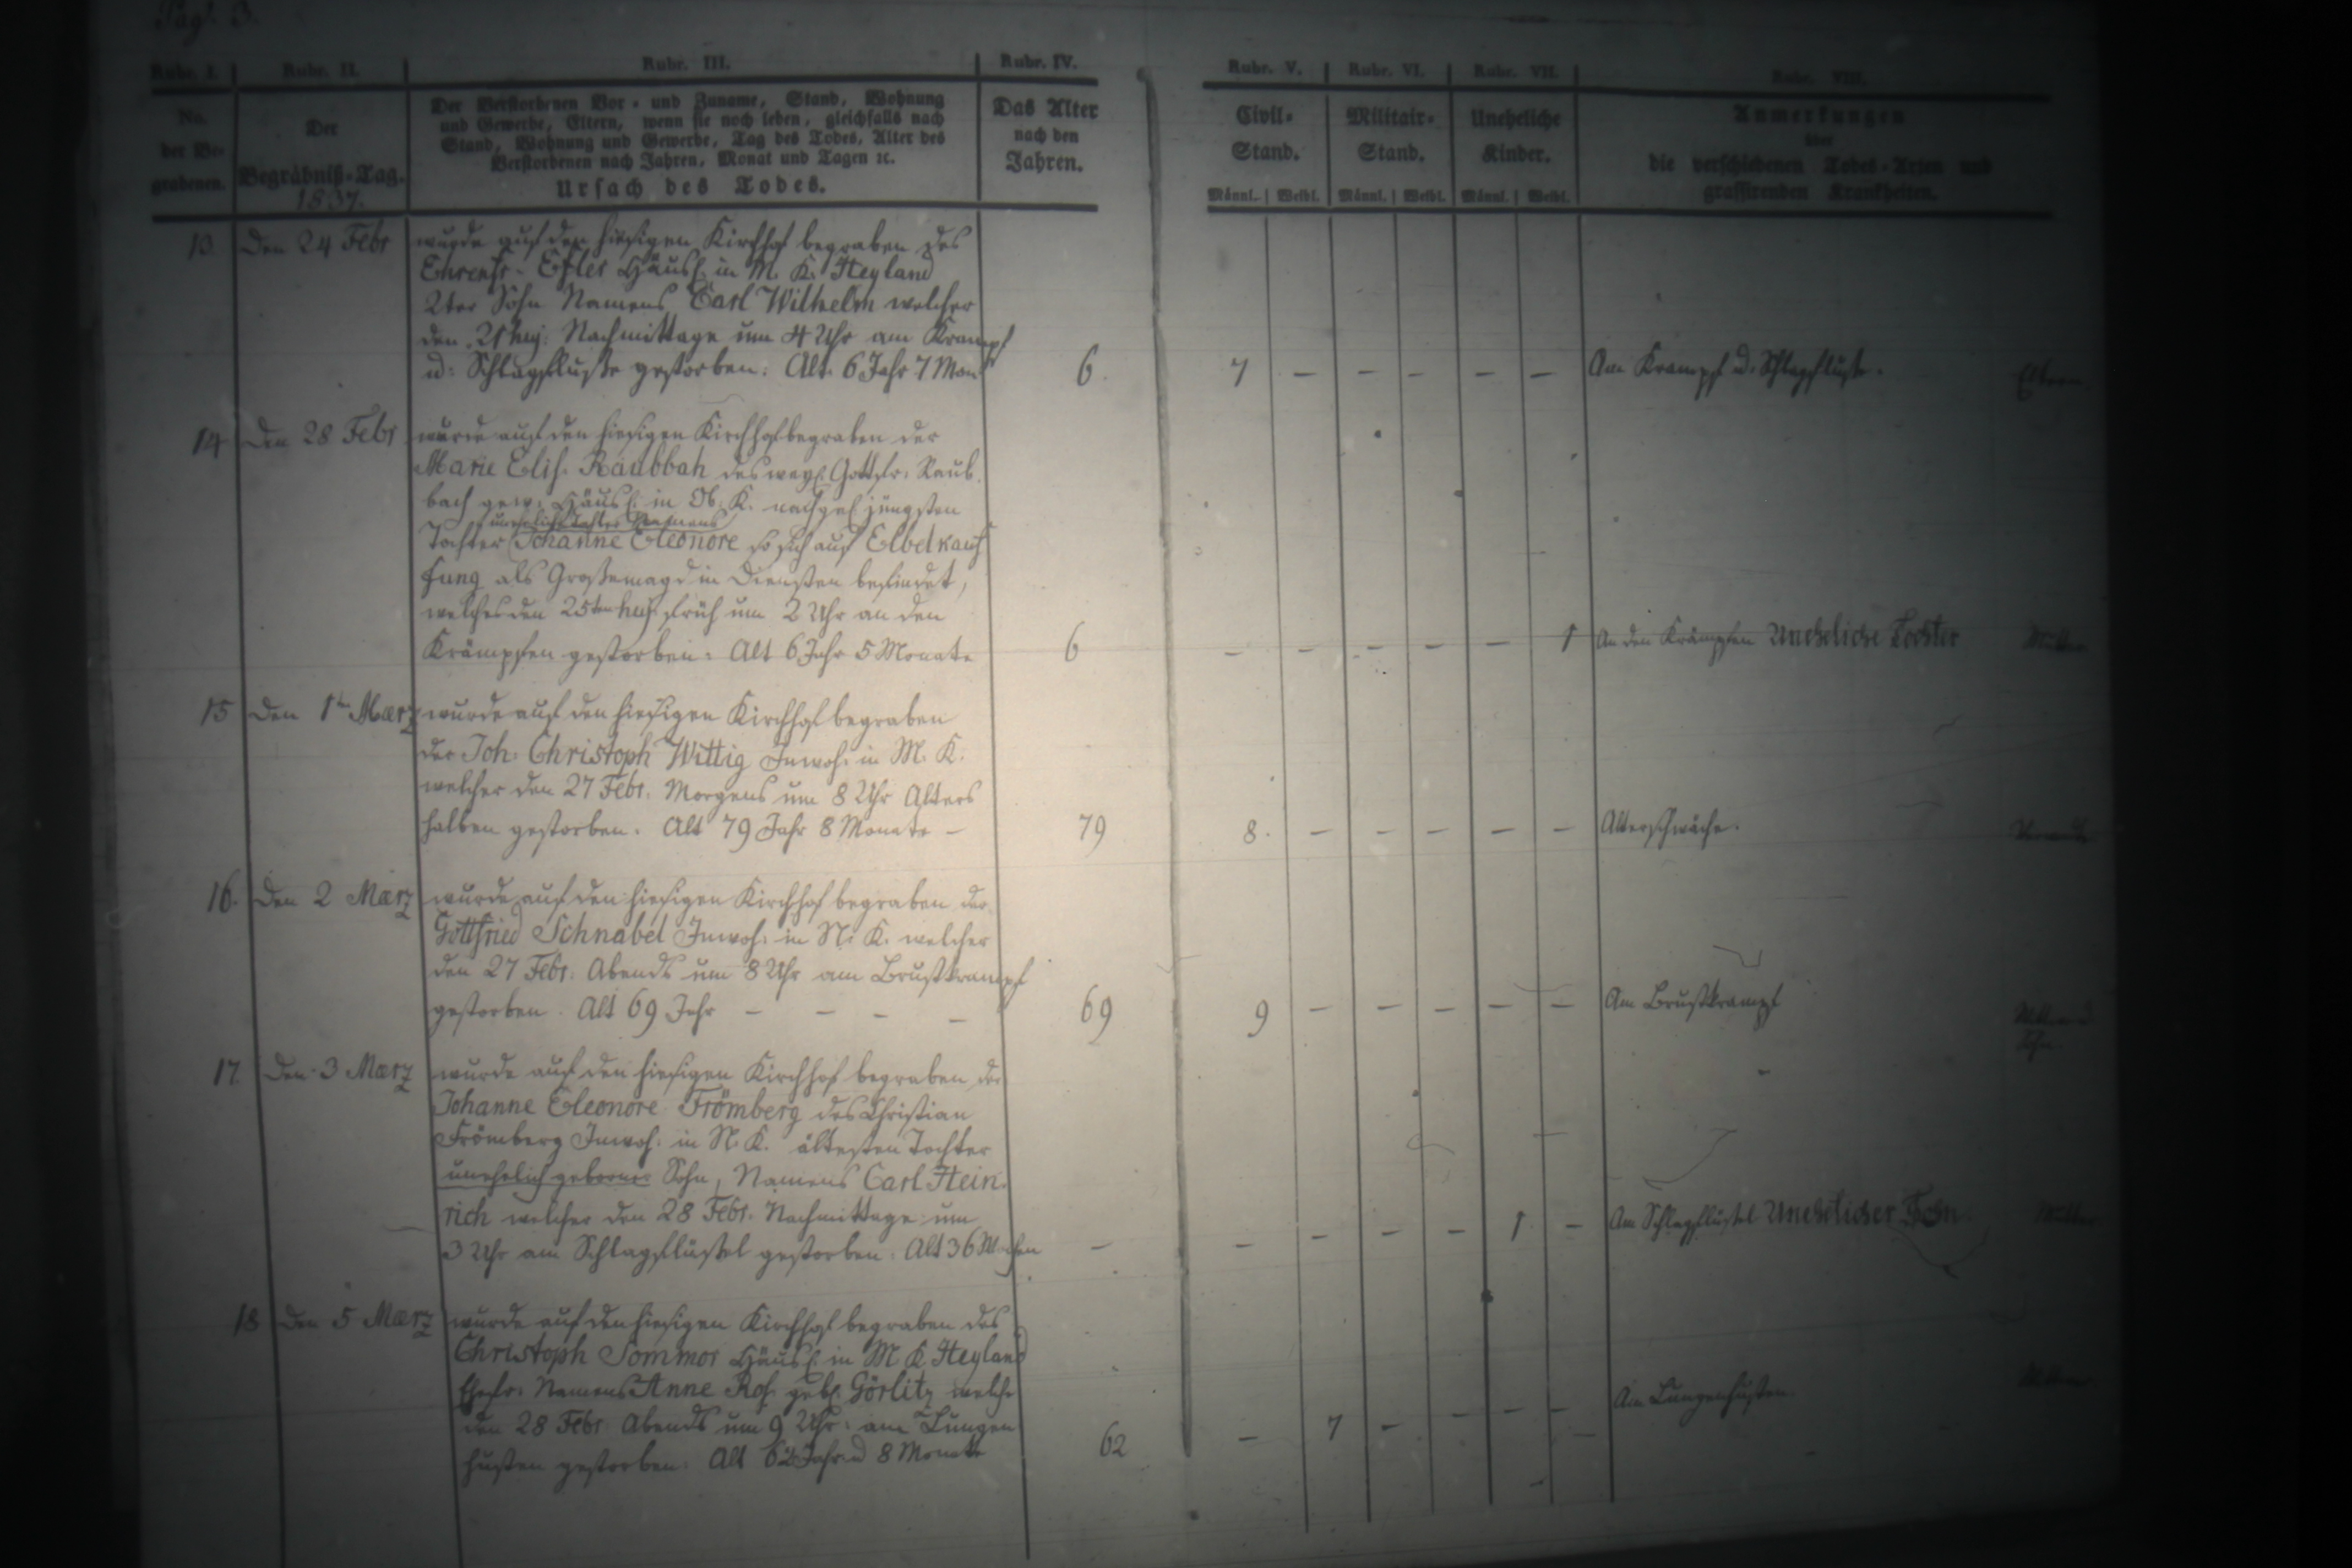 Pag. 3.
Rubr. I. Rubr. II. Rubr. III. Rubr. IV. Rubr. V. Rubr. VI. Rubr. VII. Rubr. VIII.
No. der Be- grabenen.
Der Begräbniß-Tag.
1837.
Der Verstorbenen Vor- und Zuname, Stand, Wohnung
und Gewerbe, Eltern, wenn sie noch leben, gleichfalls nach
Stand, Wohnung und Gewerbe, Tag des Todes, Alter des
Verstorbenen nach Jahren, Monat und Tagen ꝛc.
Ursach des Todes.
Das Alter
nach den
Jahren.
Civil-
Stand.
Militair-
Stand.
Uneheliche
Kinder.
Männl. Weibl. Männl. Weibl. Männl. Weibl.
Anmerkungen
über
die verschiedenen Todes-Arten und
grassirenden Krankheiten.
13 Den 24 Febr wurde auf den hiesigen Kirchhof begraben des
Ehrenfr. Häusl. in M. K. Heyland
2ter Sohn Namens Carl Wilhelm welcher
den 21 huj: Nachmittage um 4 Uhr am Krampf
u: Schlagflusse gestorben: Alt 6 Jahr 7 Mon 6. 7 — — — — — Am Krampf u. Schlagflusse. Eltern.
14 Den 28 Febr wurde auf den hiesigen Kirchhof begraben der
Marie Elis. Raubbah des weyl. Gottfr: Raub-
bach gew: Häusl: in Ob. K. nachgel jüngsten
uneheliche Tochter Namens
Tochter Johanne Eleonore so sich auf Elbelkauf
fung als Großemagd in Diensten befindet,
welche den 25ten huj. früh um 2 Uhr an den
Krämpfen gestorben: Alt 6 Jahr 5 Monate 6 — — — — — 1 An den Krämpfen Uneheliche Tochter Mutter
15 Den 1ten Maerz wurde auf den hiesigen Kirchhof begraben
der Joh: Christoph Wittig Inwoh: in M. K.
welcher den 27 Febr. Morgens um 8 Uhr Alters
halben gestorben. Alt 79 Jahr 8 Monate — 79 8. — — — — — Altersschwäche.
16. Den 2 Maerz wurde auf den hiesigen Kirchhof begraben der
Gottfried Schnabel Inwoh: in N: K. welcher
den 27 Febr. Abends um 8 Uhr am Brustkrampf
gestorben. Alt 69 Jahr — — — — 69 9 — — — — — Am Brustkrampf
17. Den 3 Maerz wurde auf den hiesigen Kirchhof begraben der
Johanne Eleonore Frömberg des Christian
Frömberg Inwoh: in N. K. ältesten Tochter
unehelich geborner Sohn, Namens Carl Hein-
rich welcher den 28 Febr. Nachmittage um
3 Uhr am Schlagflüssel gestorben: Alt 36 Wochen — — — — — 1 — Am Schlagflüssel Unehelicher Sohn Mutter
18 Den 5 Maerz wurde auf den hiesigen Kirchhof begraben des
Christoph Sommer Häusl: in M K Heyland
Ehefr: Namens Anne Ros: geb. Görlitz welche
den 28 Febr Abends um 9 Uhr: am Lungen
husten gestorben: Alt 62 Jahr u 8 Monate 62 — 7 — — — — Am Lungenhusten.